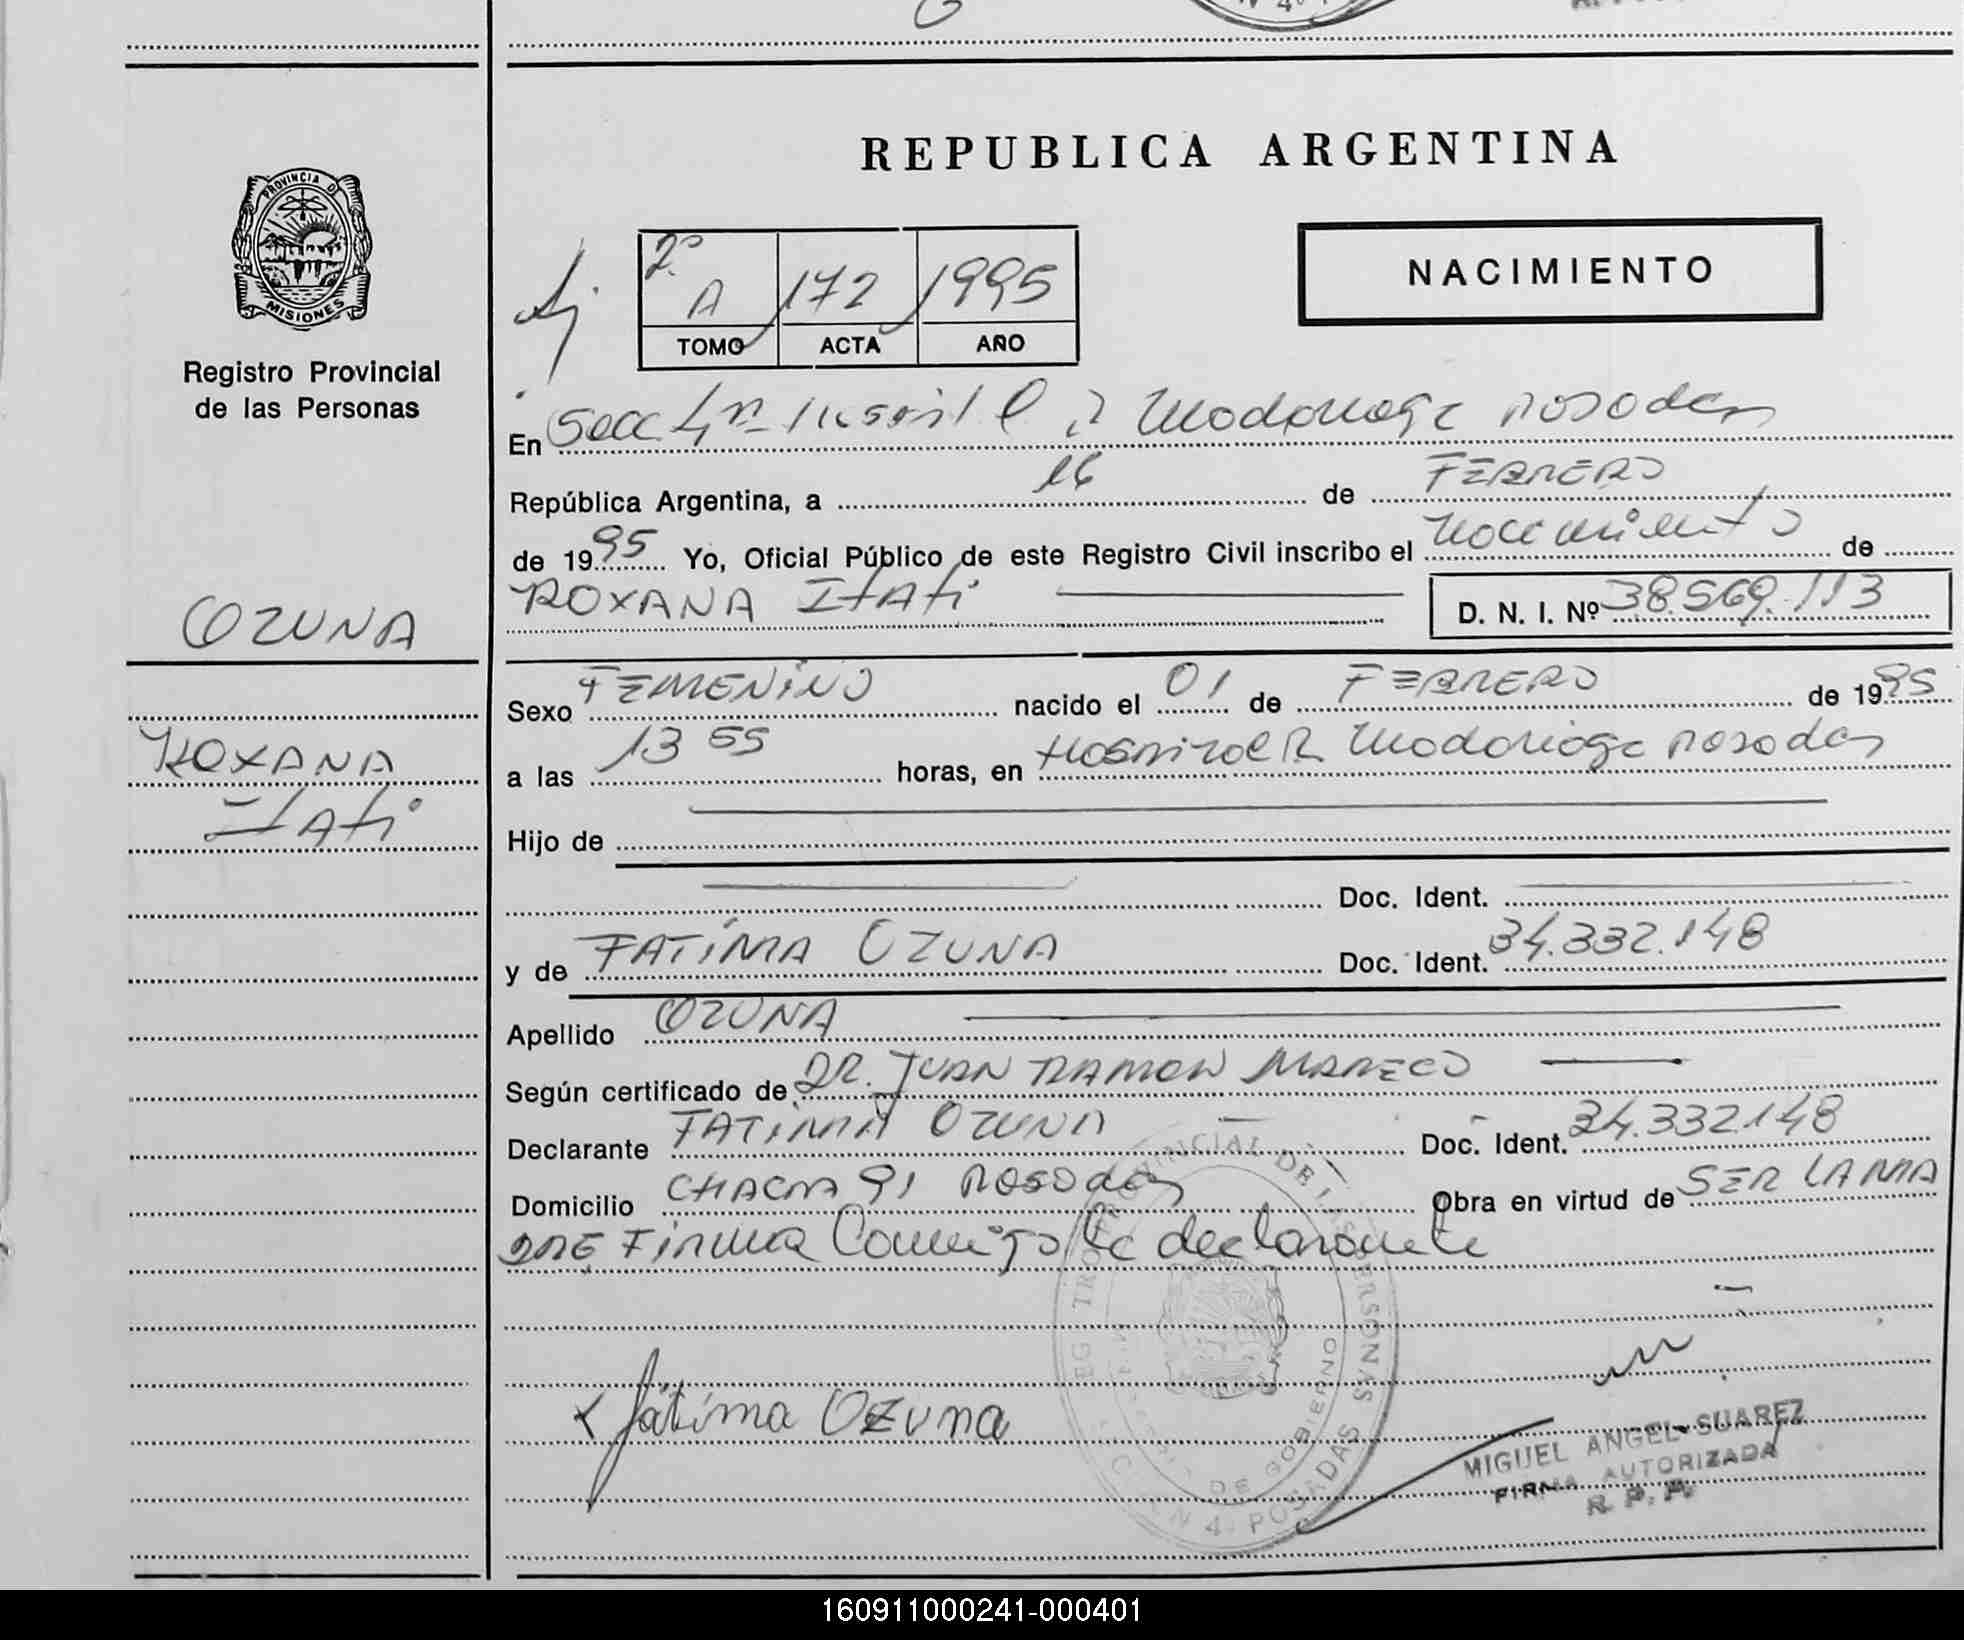 REPUBLICA ARGENTINA
PROVINCIA D
MISIONES
Registro Provincial
de las Personas
2º
A 172 1995
TOMO ACTA AÑO
NACIMIENTO
En Secc 4ª Hospital R Madariaga Posadas
República Argentina, a 16 de FEBRERO
de 1995 Yo, Oficial Público de este Registro Civil inscribo el Nacimiento de
ROXANA Itatí D. N. I. Nº 38.569.113
OZUNA
ROXANA
Itatí
Sexo FEMENINO nacido el 01 de FEBRERO de 1995
a las 13 55 horas, en Hospital R Madariaga Posadas
Hijo de
Doc. Ident.
y de FATIMA OZUNA Doc. Ident. 34.332.148
Apellido OZUNA
Según certificado de DR. JUAN RAMON MARECO
Declarante FATIMA OZUNA Doc. Ident. 34.332148
Domicilio CHACRA 91 Posadas Obra en virtud de SER LA MA
DRE Firma Conmigo la declarante
Fátima Ozuna
MIGUEL ANGEL SUAREZ
FIRMA AUTORIZADA
R. P. P.
160911000241-000401